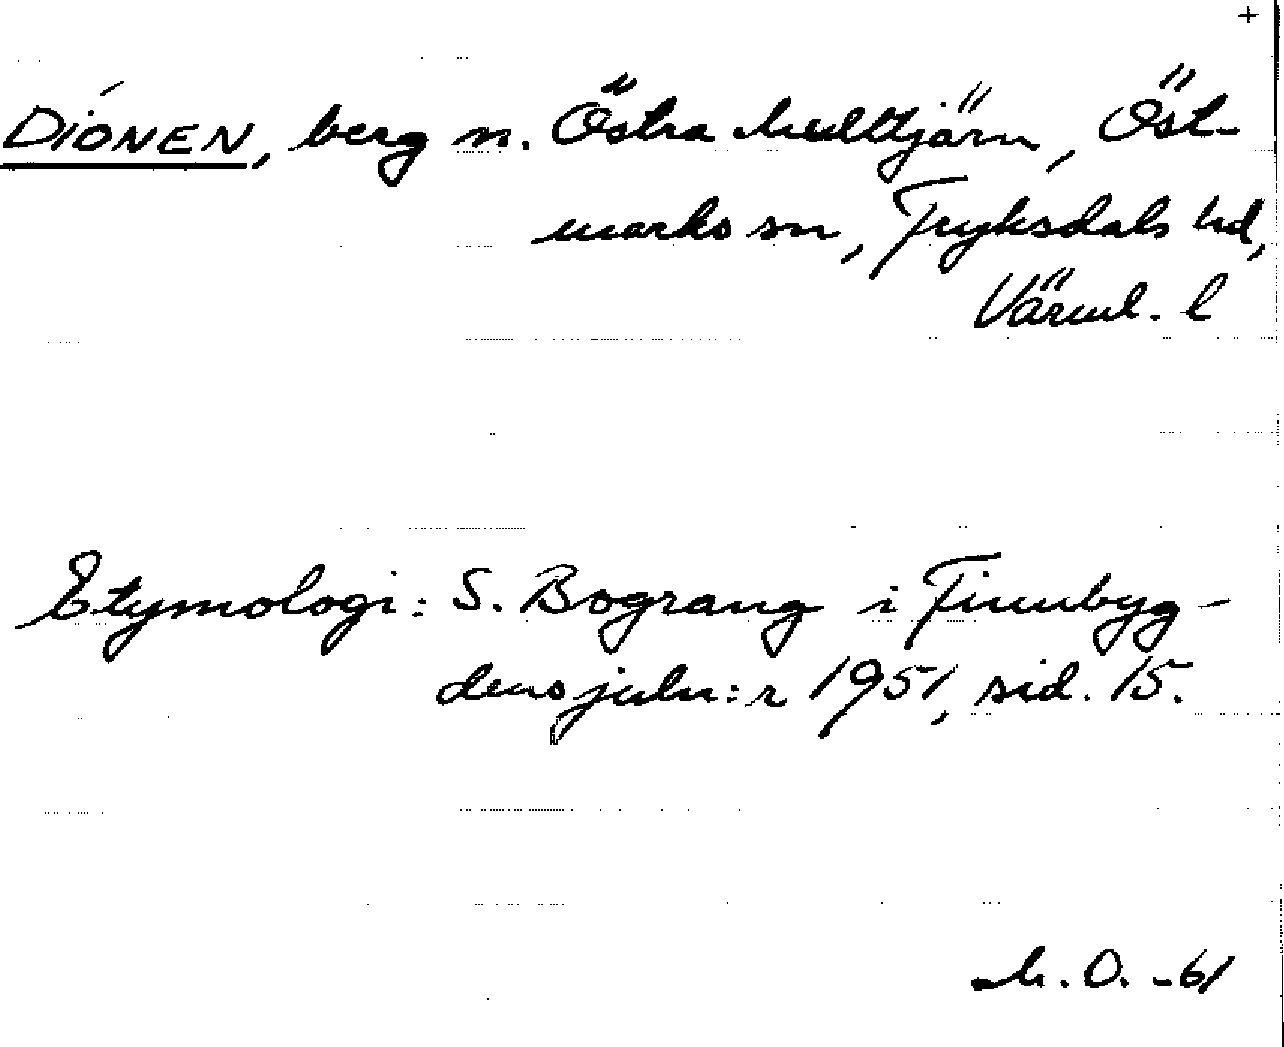 +
DÍONEN, berg n. Östra Mulltjärn, Öst-
marks sn, Fryksdals hd,
Värml. l
Etymologi: S. Bograng i Finnbyg-
densjuln:r 1951, sid. 15.
M. O. -61